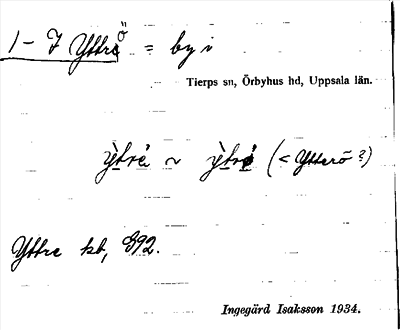 1-7 Yttrö = by i
Tierps sn, Örbyhus hd, Uppsala län.
ỳtrè ~ ỳtrè (< Ytterö?)
Yttre kb, G92.
Ingegärd Isaksson 1934.